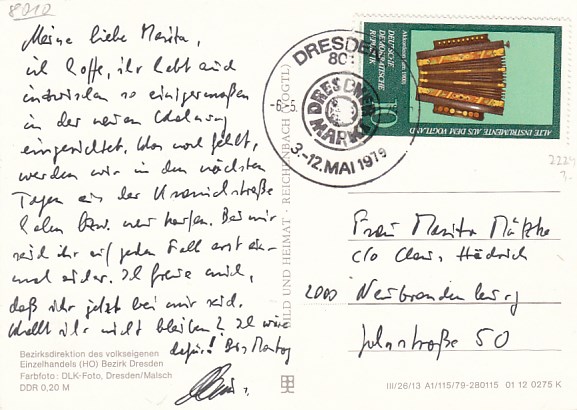 8010
Meine liebe Marita,
ich hoffe, ihr habt euch
inzwischen so einigermaßen
in der neuen Wohnung
eingerichtet. Was noch fehlt,
werden wir in den nächsten
Tagen aus der
holen bzw. neu kaufen. Bei mir
seid ihr auf jeden Fall erst ein-
mal sicher. Ich freue mich,
daß ihr jetzt bei mir seid.
Wollt ihr nicht bleiben? Ich wäre
dafür! Bis Montag
Bezirksdirektion des volkseigenen
Einzelhandels (HO) Bezirk Dresden
Farbfoto: DLK-Foto, Dresden/Malsch
DDR 0,20 M
BILD UND HEIMAT · REICHENBACH (VOGTL)
DRESDEN
801
-6.5.
DRESDNER
MARKT
3.-12.MAI 1979
DEUTSCHE
DEMOKRATISCHE
REPUBLIK
10
ALTE INSTRUMENTE AUS DEM VOGTLAND
2224
Frau Marita
c/o
2000 Neubrandenburg
straße 50
III/26/13 A1/115/79-280115 01 12 0275 K